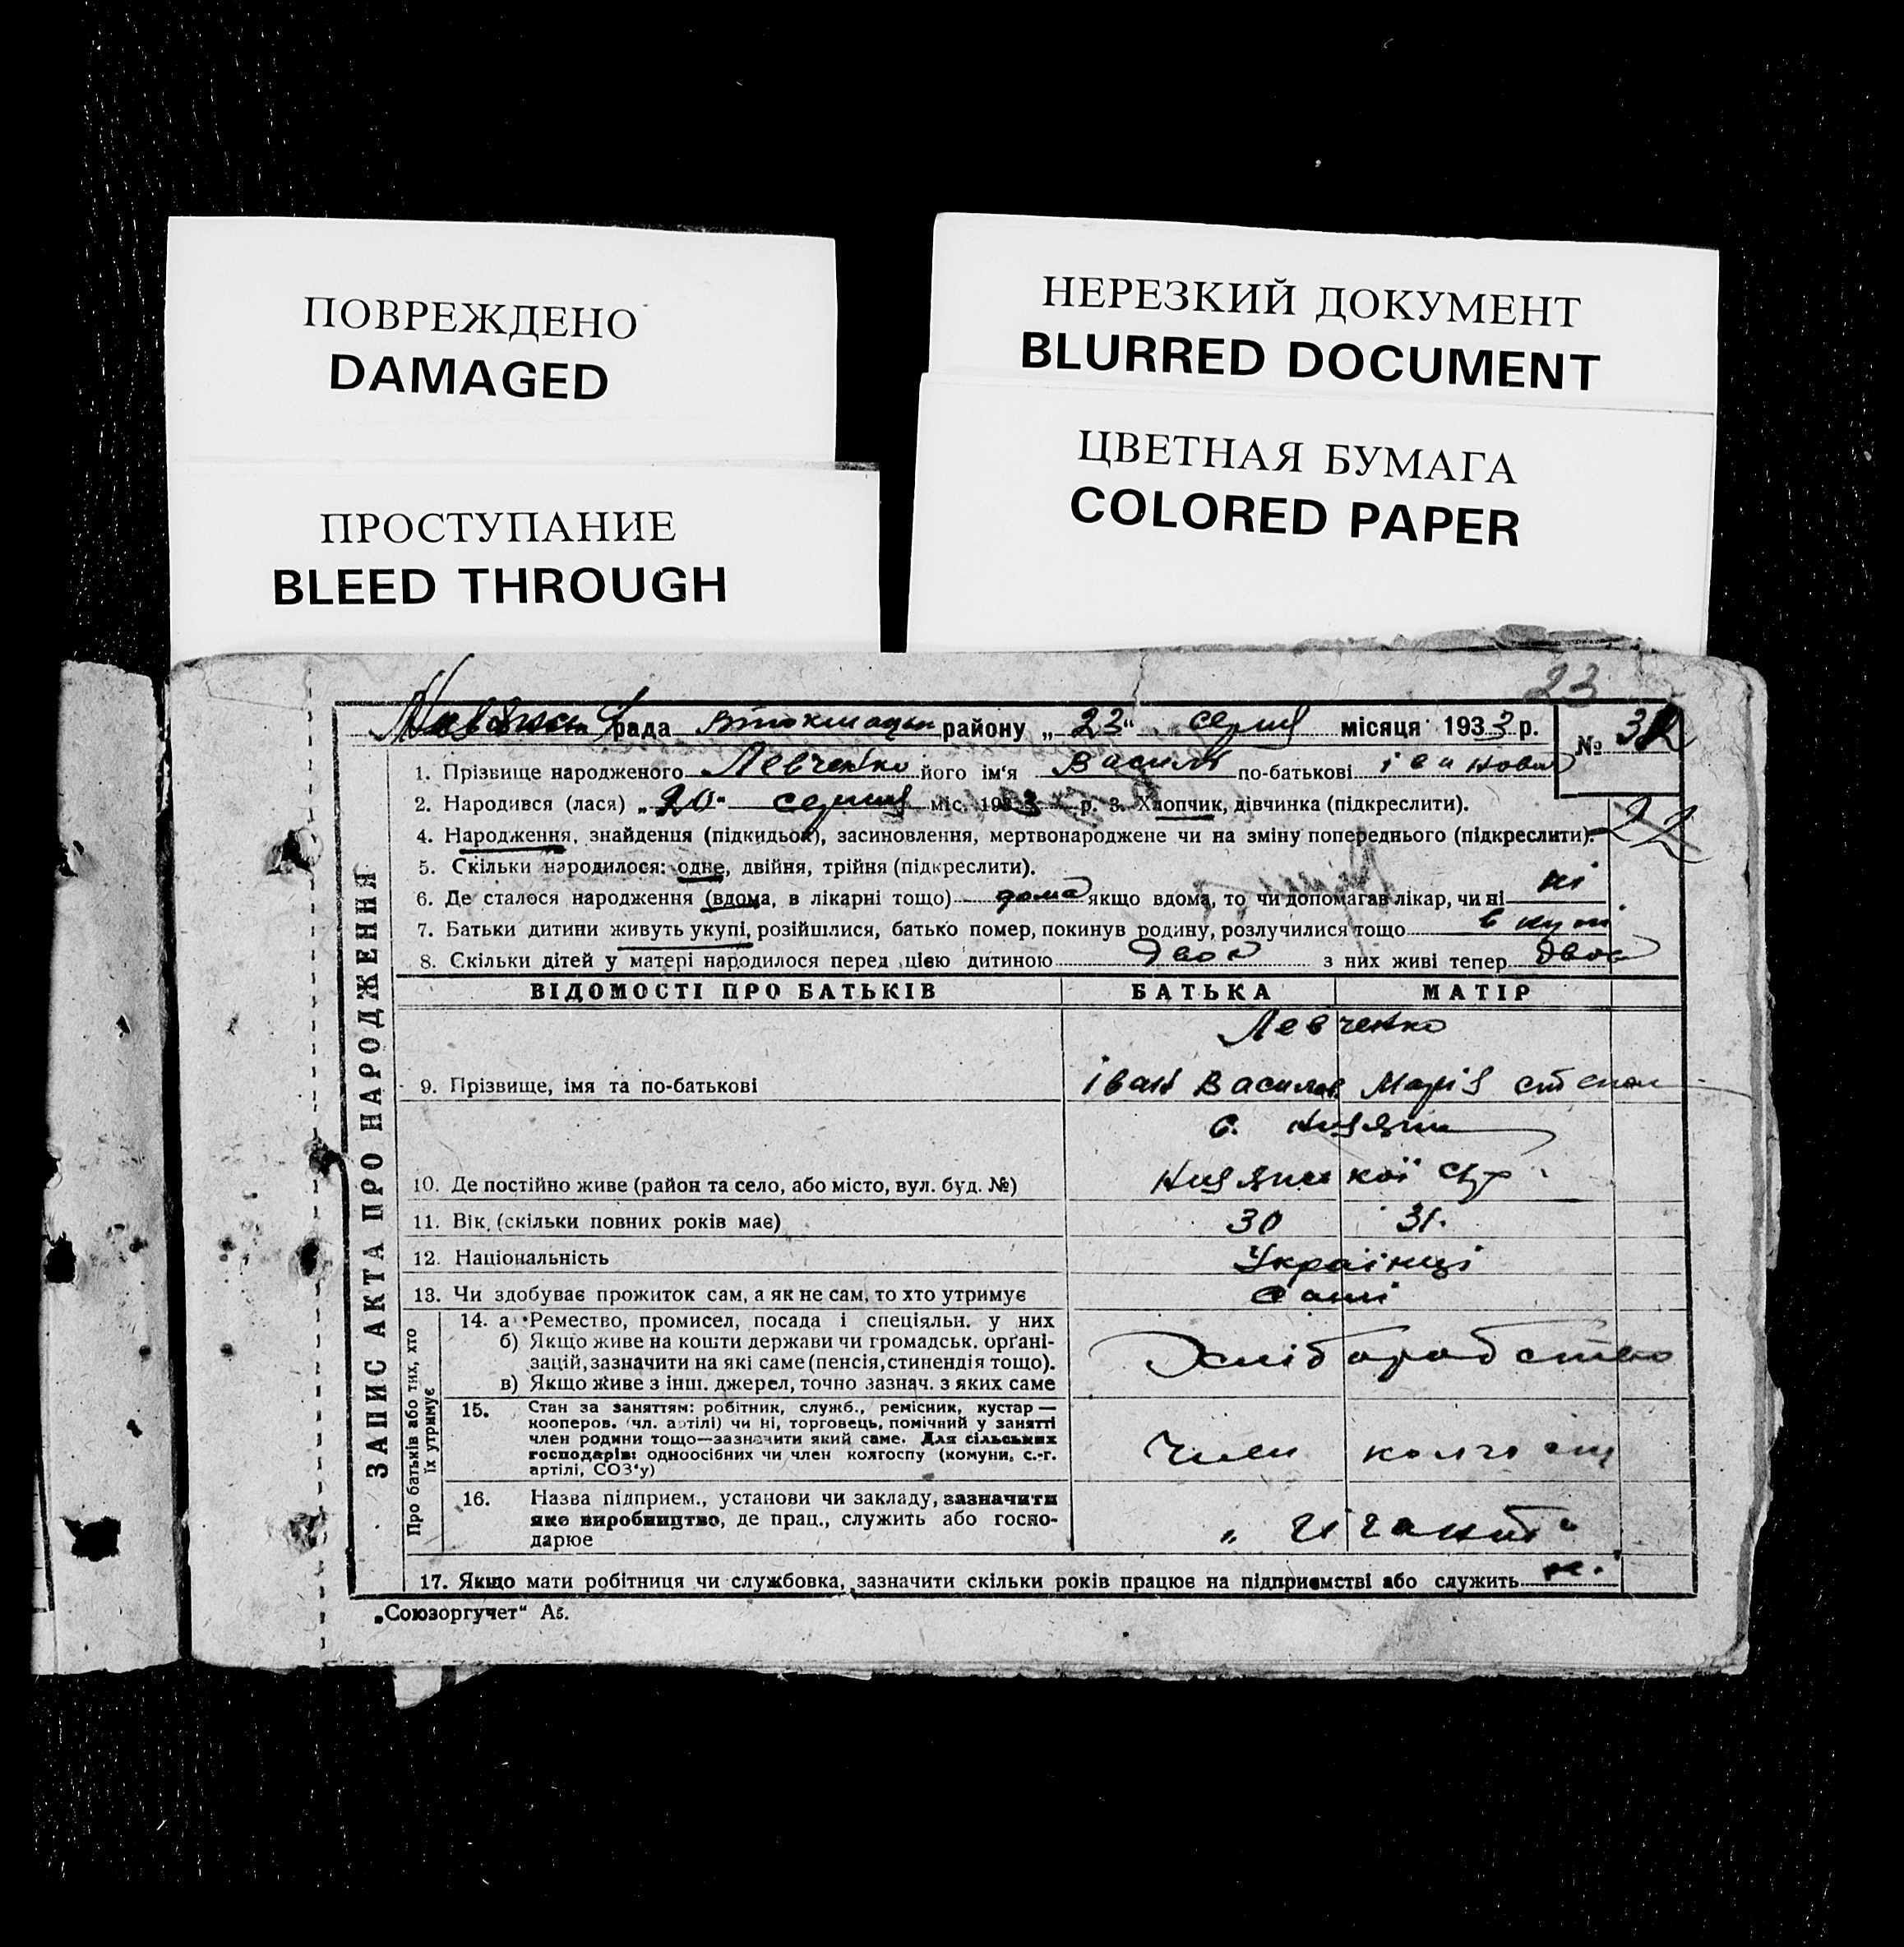 ПОВРЕЖДЕНО
DAMAGED
НЕРЕЗКИЙ ДОКУМЕНТ
BLURRED DOCUMENT
ПРОСТУПАНИЕ
BLEED THROUGH
ЦВЕТНАЯ БУМАГА
COLORED PAPER
23
рада району „23“ серпня місяця 1933 р.
№ 32
1. Прізвище народженого Левченко його ім‘я Василь по-батькові Іванович
2. Народився (лася) „20“ серпня міс. 1933 р. 3. Хлопчик, дівчинка (підкреслити).
22
4. Народження, знайдення (підкидьок), засиновлення, мертвонароджене чи на зміну попереднього (підкреслити).
5. Скільки народилося: одне, двійня, трійня (підкреслити).
6. Де сталося народження (вдома, в лікарні тощо) дома якщо вдома, то чи допомагав лікар, чи ні ні
7. Батьки дитини живуть укупі, розійшлися, батько помер, покинув родину, розлучилися тощо вкупі
8. Скільки дітей у матері народилося перед цією дитиною двоє з них живі тепер двоє
ЗАПИС АКТА ПРО НАРОДЖЕННЯ
ВІДОМОСТІ ПРО БАТЬКІВ БАТЬКА МАТІР
Левченко
9. Прізвище, імя та по-батькові Іван Василов. Марія Степан
с.
10. Де постійно живе (район та село, або місто, вул. буд. №)
11. Вік, (скільки повних років має) 30 31.
12. Національність Українці
13. Чи здобуває прожиток сам, а як не сам, то хто утримує самі
Про батьків або тих, хто їх утримує
14. а Ремество, промисел, посада і спеціяльн. у них
б) Якщо живе на кошти держави чи громадськ. орґані-
зацій, зазначити на які саме (пенсія, стипендія тощо).
в) Якщо живе з інш. джерел, точно зазнач. з яких саме
Хліборобство
15. Стан за заняттям: робітник, служб., ремісник, кустар —
кооперов. (чл. артілі) чи ні, торговець, помічний у занятті
член родини тощо—зазначити який саме. Для сільських
господарів: одноосібних чи член колгоспу (комуни, с.-г.
артілі, СОЗ‘у)
Член колгоспу
16. Назва підприєм., установи чи закладу, зазначити
яке виробництво, де прац., служить або госпо-
дарює
„Гігант“
17. Якщо мати робітниця чи службовка, зазначити скільки років працює на підприємстві або служить
„Союзоргучет“ А5.